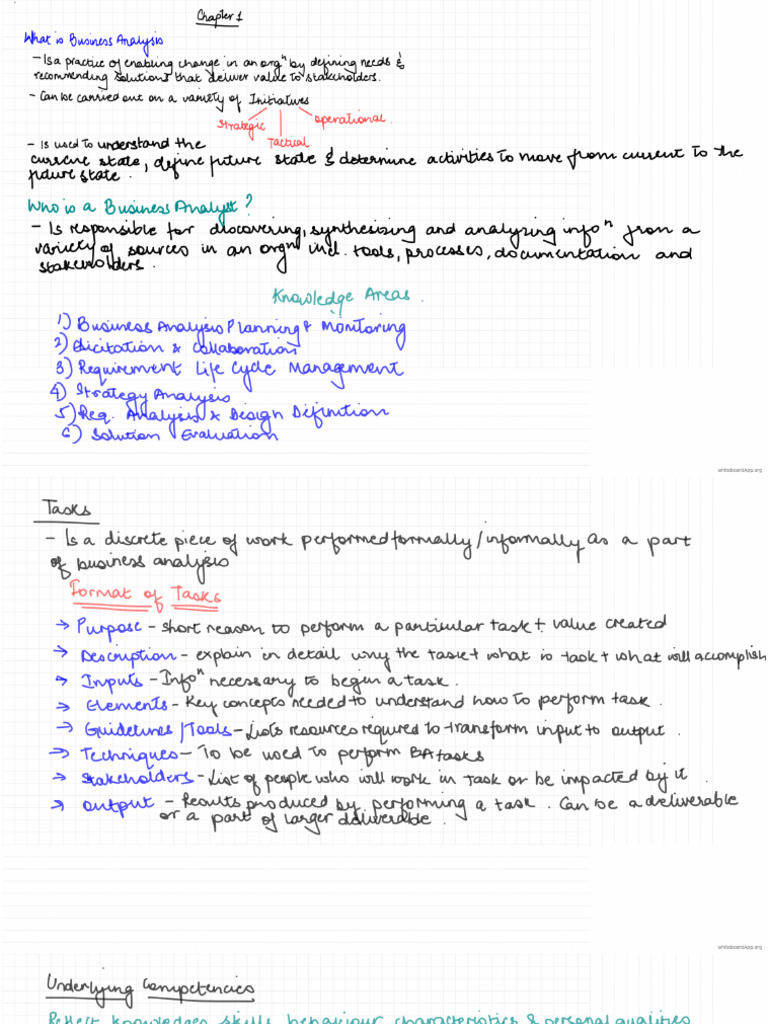 Chapter 1
What is Business Analysis
- Is a practice of enabling change in an orgⁿ by defining needs &
recommending solutions that deliver value to stakeholders.
- Can be carried out on a variety of Initiatives
Strategic Tactical Operational
- Is used to understand the
current state, define future state & determine activities to move from current to the
future state.
Who is a Business Analyst?
- Is responsible for discovering, synthesizing and analyzing infoⁿ from a
variety of sources in an orgⁿ incl. tools, processes, documentation and
stakeholders.
Knowledge Areas.
1) Business Analysis Planning & Monitoring
2) Elicitation & Collaboration
3) Requirement Life Cycle Management
4) Strategy Analysis
5) Req. Analysis & Design Definition
6) Solution Evaluation
whiteboardApp.org
Tasks
- Is a discrete piece of work performed formally/informally as a part
of business analysis
Format of Tasks
→ Purpose - short reason to perform a particular task + value created
→ Description - explain in detail why the task + what is task + what will accomplish
→ Inputs - Infoⁿ necessary to begin a task.
→ Elements - Key concepts needed to understand how to perform task.
→ Guidelines/Tools - Lists resources required to transform input to output.
→ Techniques - To be used to perform BA tasks
→ Stakeholders - List of people who will work in task or be impacted by it.
→ Output - Results produced by performing a task. Can be a deliverable
or a part of larger deliverable.
whiteboardApp.org
Underlying Competencies
Reflect knowledge, skills, behaviour characteristics & personal qualities